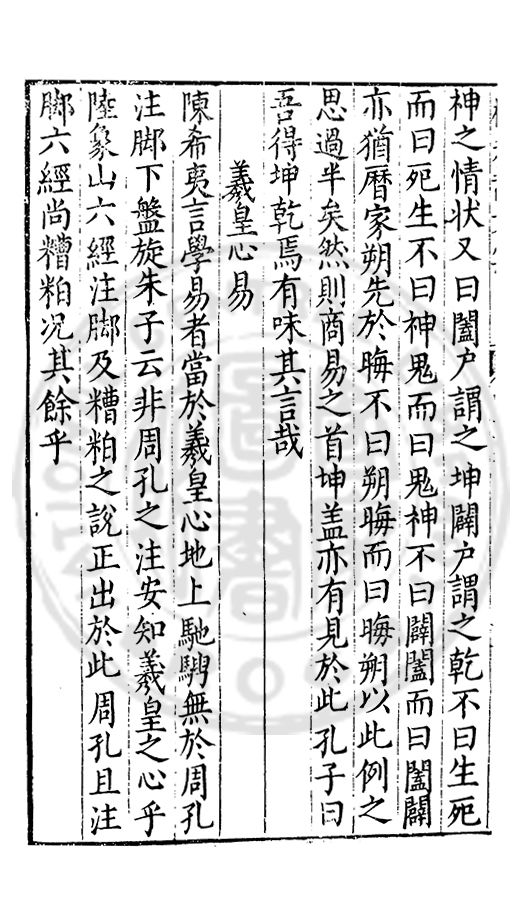 神之情状又曰闔户謂之坤闢户謂之乾不曰生死
而曰死生不曰神鬼而曰鬼神不曰闢闔而曰闔闢
亦猶曆家朔先於晦不曰朔晦而曰晦朔以此例之
思過半矣然則商易之首坤盖亦有見於此孔子曰
吾得坤乾焉有味其言哉
羲皇心易
陳希夷言學易者當於羲皇心地上馳騁無於周孔
注脚下盤旋朱子云非周孔之注安知羲皇之心乎
陸象山六經注脚及糟粕之說正出於此周孔且注
脚六經尚糟粕况其餘乎